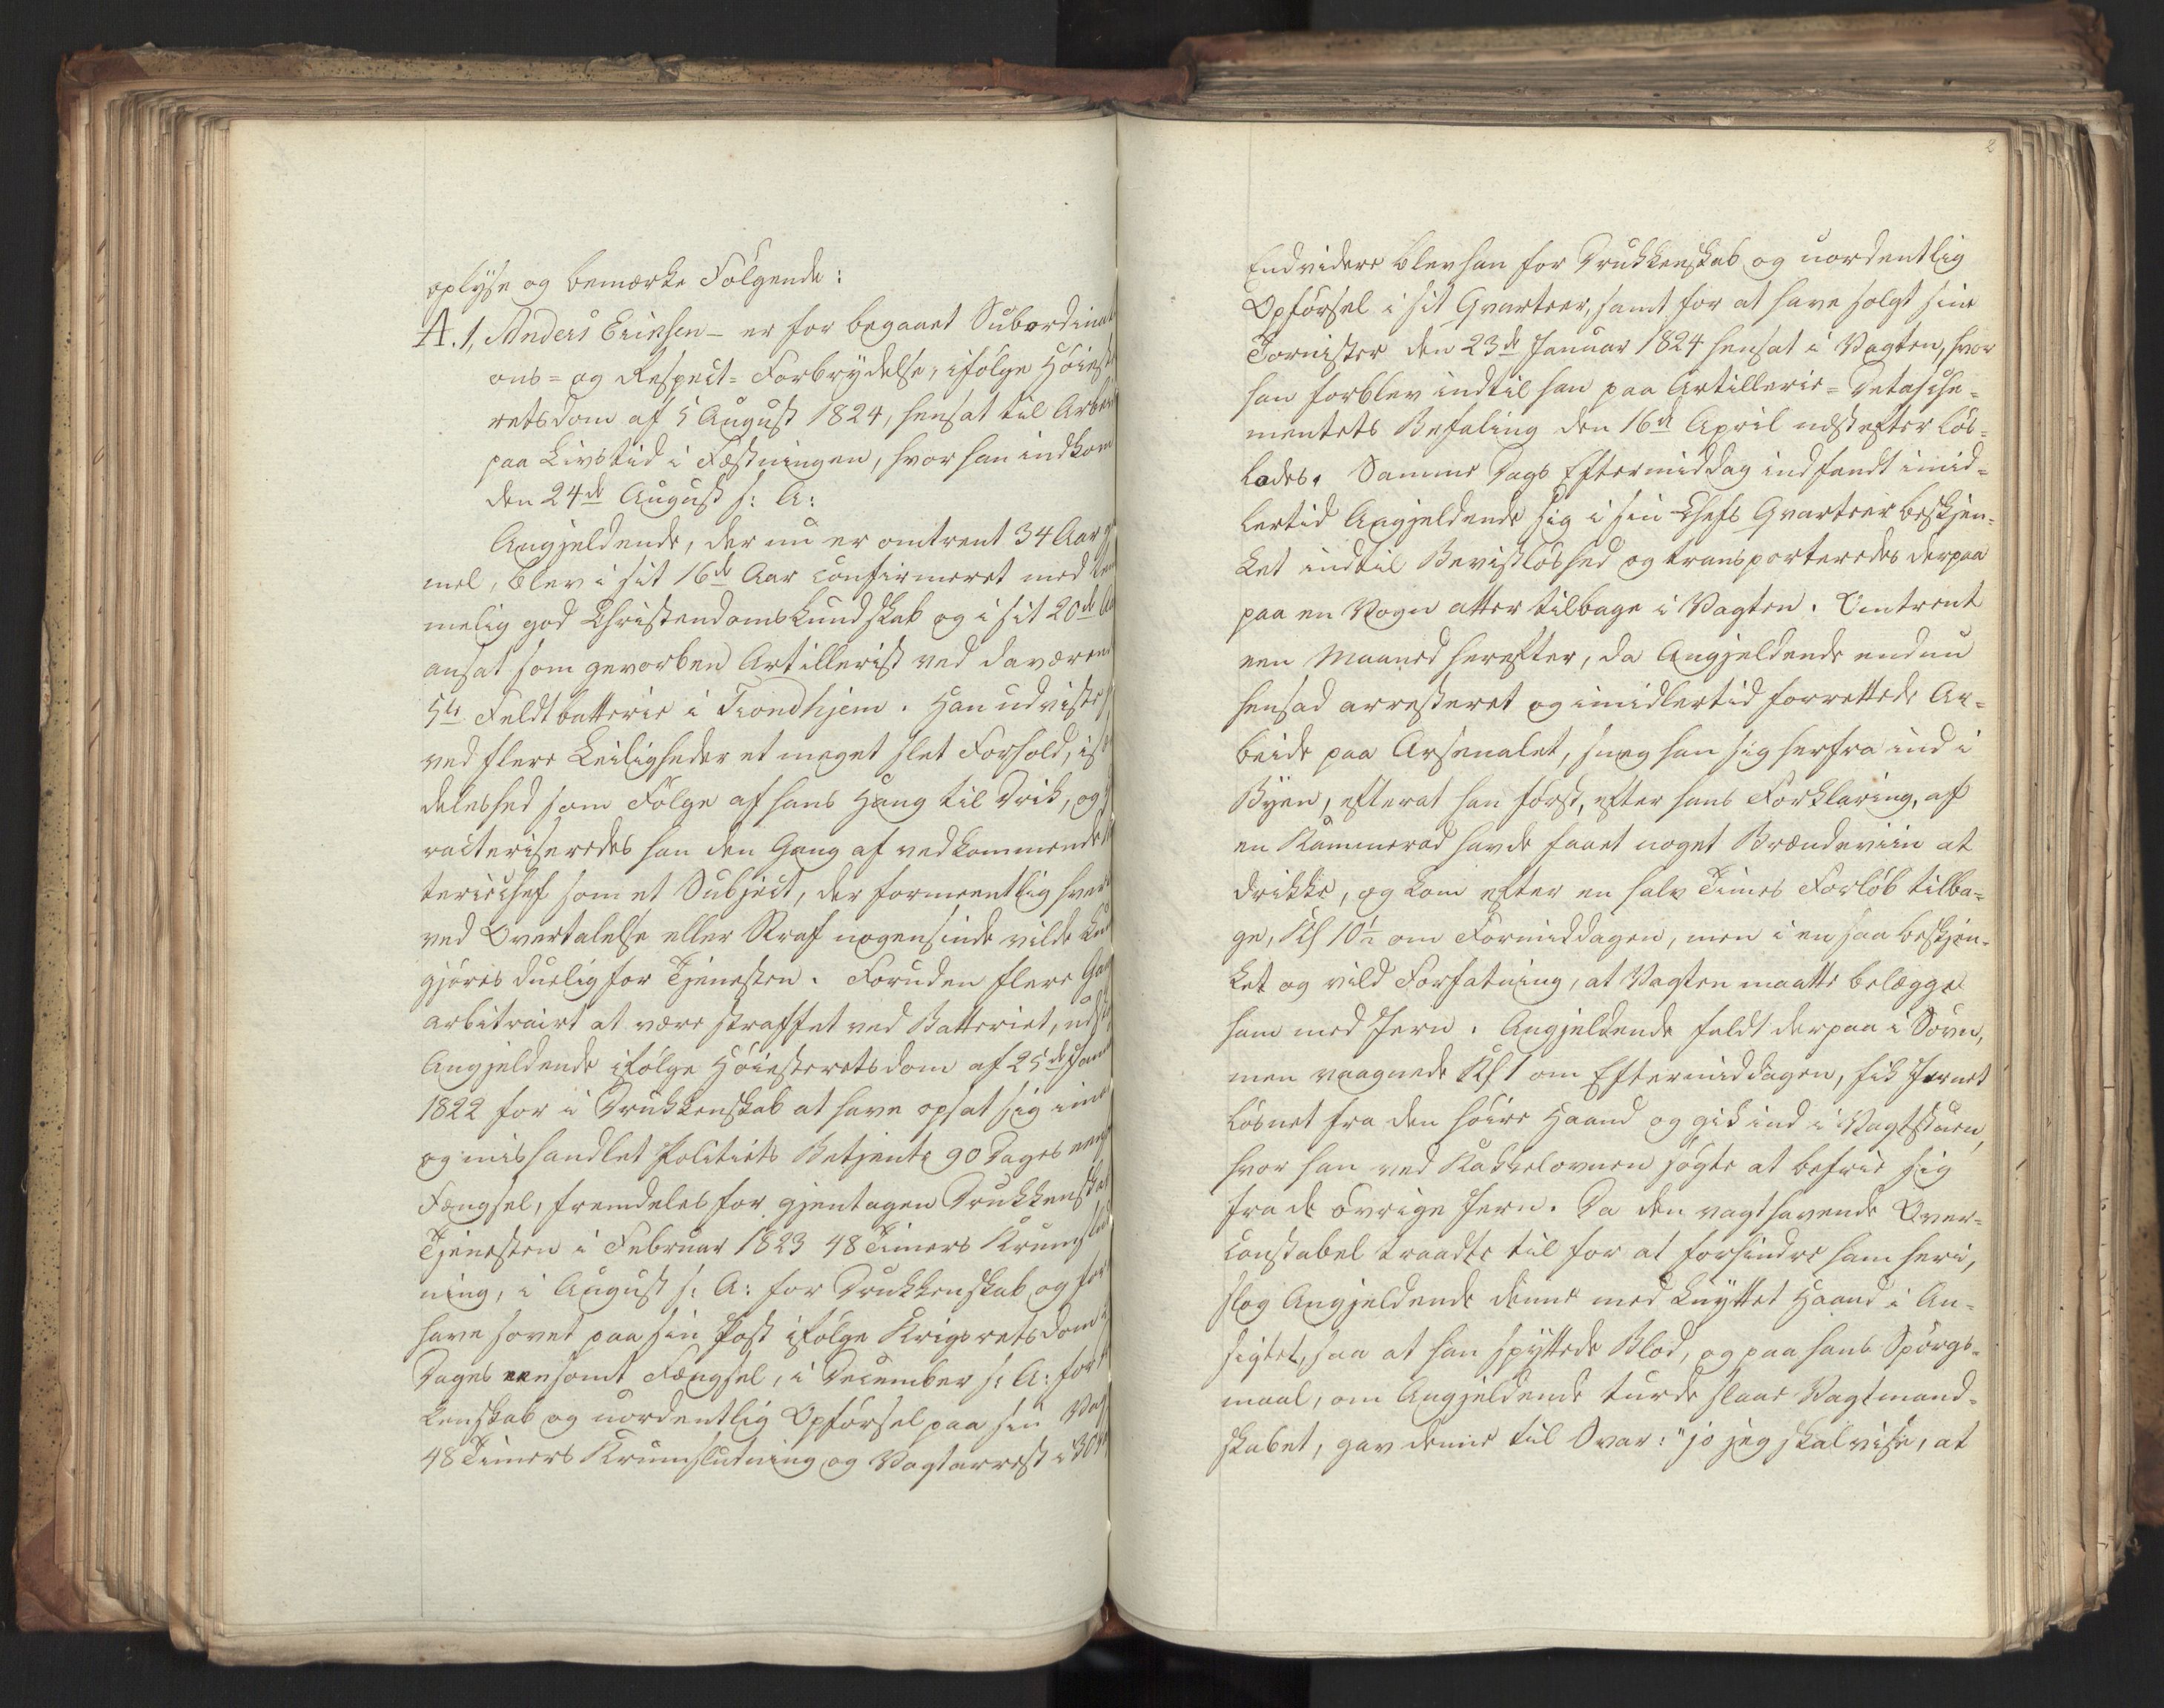 oplyse og bemærke Følgende:
A. 1, Anders Erichsen – er for begaaet Subordinati
ons- og Respect-Forbrydelse, ifølge Høieste
retsdom af 5 August 1824, hensat til Arbeid
paa Livstid i Fæstningen, hvor han indkom
den 24de August s: A:
Angjeldende, der nu er omtrent 34 Aar
mel, blev i sit 16de Aar confirmeret med
melig god Christendomskundskab og i sit 20de
ansat som gevorben Artillerist ved daværende
5te Feldtbatterie i Trondhjem. Han udviste
ved flere Leiligheder et meget slet Forhold,
deleshed som Følge af hans Hang til Drik, og
racteriseredes han den Gang af vedkommende
teriechef som et Subject, der formeentlig hverken
ved Overtalelse eller Straf nogensinde vilde
gjøres duelig for Tjenesten. Foruden flere Gange
arbitrairt at være straffet ved Batteriet,
Angjeldende ifølge Høiesteretsdom af 25de Januar
1822 for i Drukkenskab at have opsat sig imod
og mishandlet Politiets Betjente 90 Dages
Fængsel, fremdeles for gjentagen Drukkenskab
Tjenesten i Februar 1823 48 Timers Krumslut
ning, i August s: A: for Drukkenskab og for
have sovet paa sin Post ifølge Krigsretsdom
Dages eensomt Fængsel, i December s: A: for
kenskab og uordentlig Opførsel paa sin Vagt
48 Timers Krumslutning og Vagtarrest i 30
2
Endvidere blev han for Drukkenskab og uordentlig
Opførsel i sit Qvarteer, samt for at have solgt sine
Tornister den 23de Januar 1824 hensat i Vagten, hvor
han forblev indtil han paa Artillerie-Detasche-
mentets Befaling den 16de April næstefter løs-
lodes. Samme Dags Eftermiddag indfandt imid-
lertid Angjeldende sig i sin Chefs Qvarteer beskjen-
ket indtil Bevistløshed og transporteredes derpaa
paa en Vogn atter tilbage i Vagten. Omtrent
een Maaned herefter, da Angjeldende endnu
hensad arresteret og imidlertid forrettede Ar-
beide paa Arsenalet, sneg han sig herfra ind i
Byen, efterat han først, efter hans Forklaring, af
en Kammerad havde faaet noget Brændeviin at
drikke, og kom efter en halv Times Forløb tilba-
ge, Kl 10½ om Formiddagen, men i en saa beskjen-
ket og vild Forfatning, at Vagten maatte belægge
ham med Jern. Angjeldende faldt derpaa i Søvn,
men vaagnede Kl 1 om Eftermiddagen, fik Jernet
løsnet fra den høire Haand og gik ind i Vagtstuen,
hvor han ved Kakkelovnen søgte at befrie sig
fra de øvrige Jern. Da den vagthavende Over-
constabel traadte til for at forhindre ham heri,
slog Angjeldende denne med knyttet Haand i An-
sigtet, saa at han spyttede Blod, og paa hans Spørgs-
maal, om Angjeldende turde slaae Vagtmand-
skabet, gav denne til Svar: "jo jeg skal vise, at